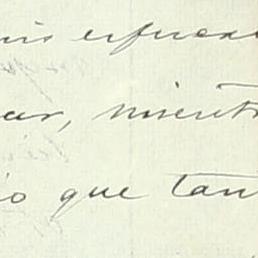 mis esfuerz
ar, mient
io que tan